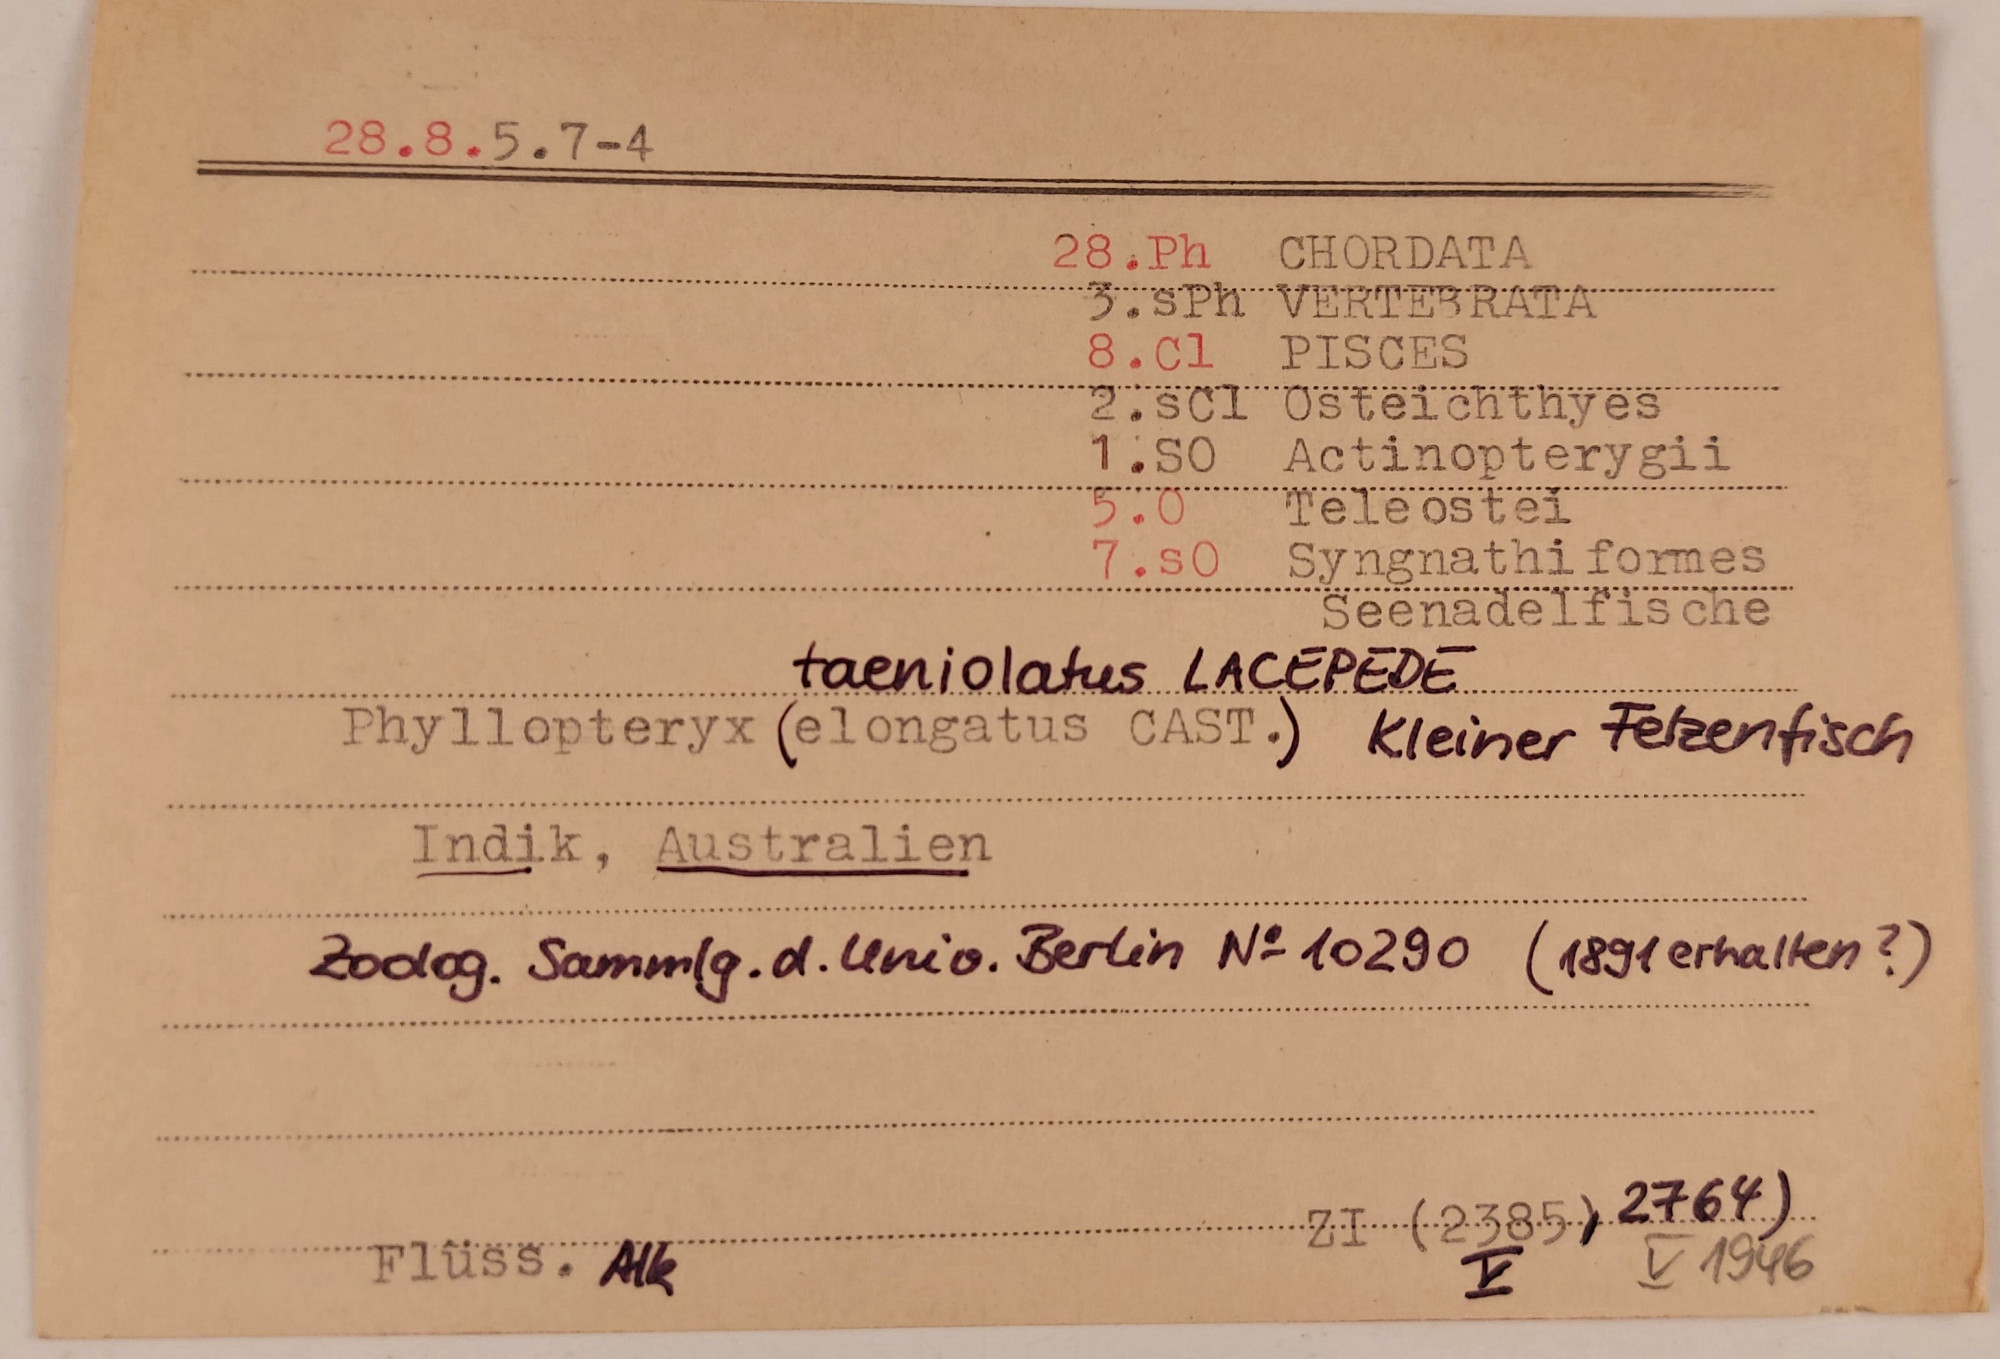 28.8.5.7-4
28.Ph CHORDATA
3.sPh VERTEBRATA
8.Cl PISCES
2.sCl Osteichthyes
1.SO Actinopterygii
5.O Teleostei
7.sO Syngnathiformes
Seenadelfische
taeniolatus LACEPEDE
Phyllopteryx (elongatus CAST.) Kleiner Fetzenfisch
Indik, Australien
Zoolog. Sammlg. d. Univ. Berlin № 10290 (1891 erhalten?)
ZI (2385, 2764)
Flüss. Alk V V 1946